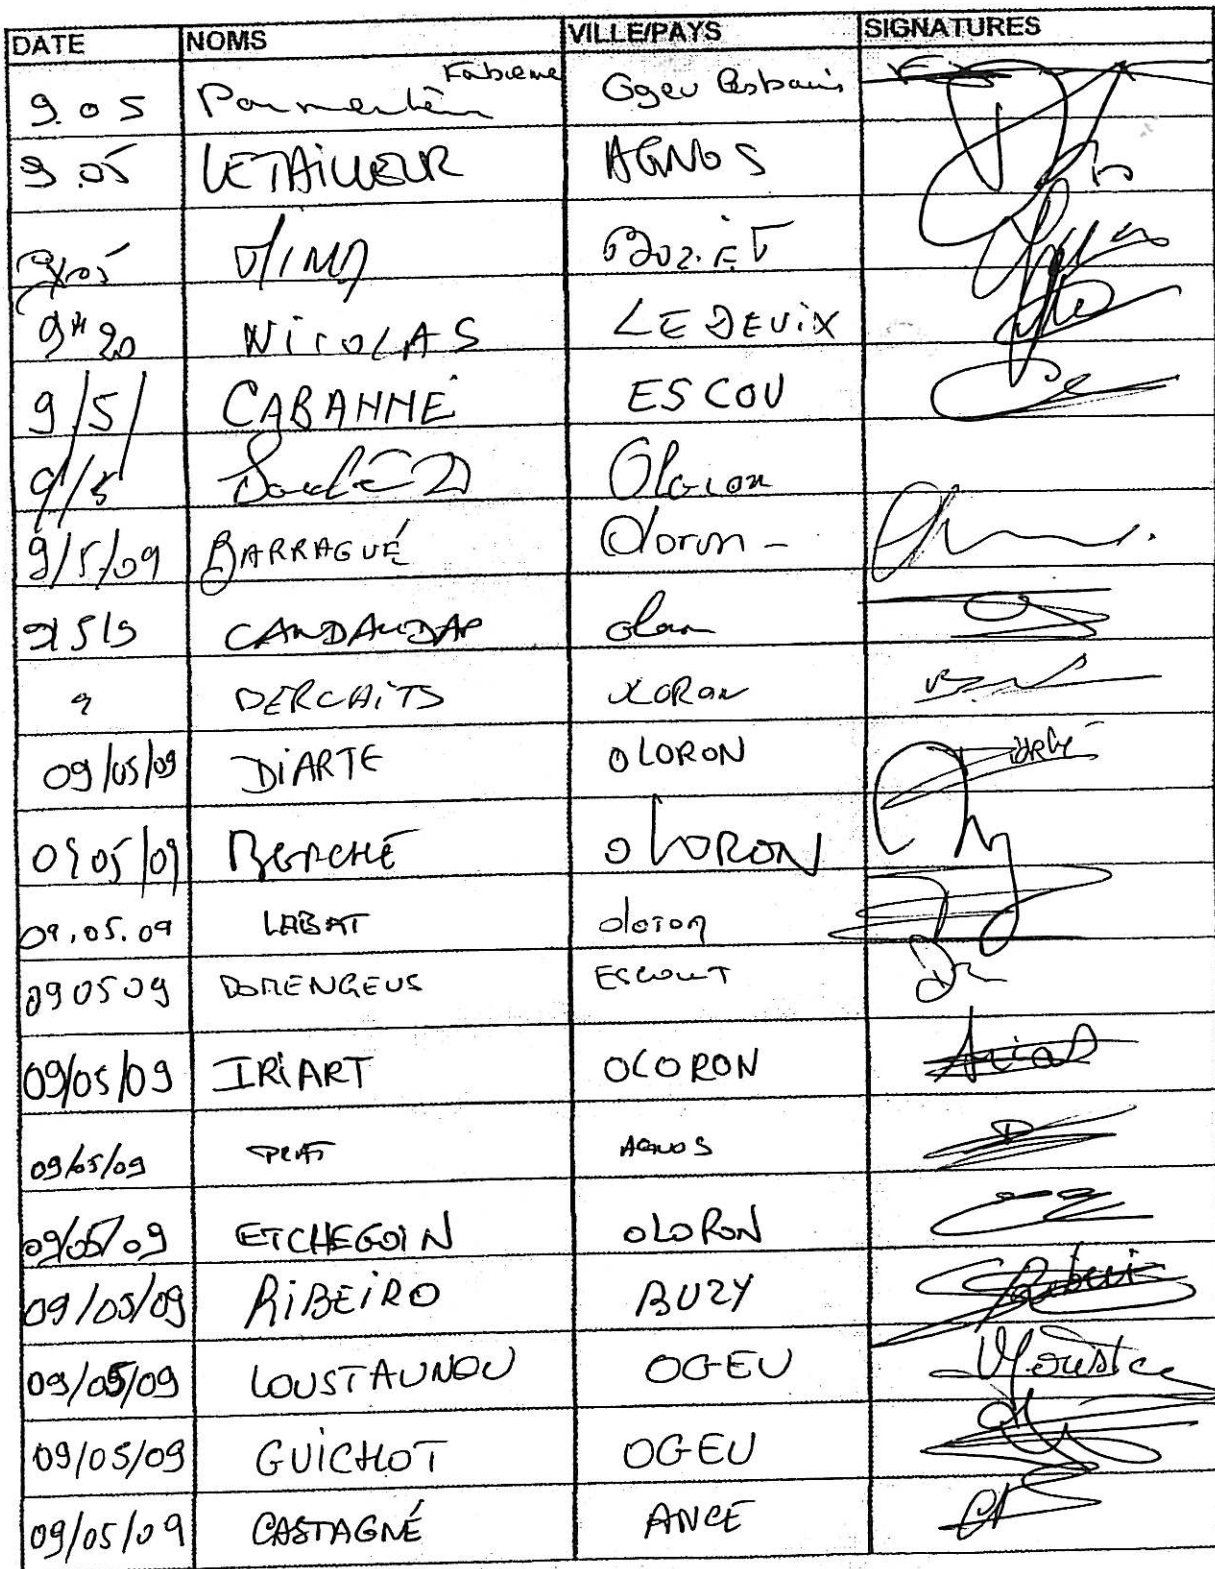 DATE NOMS VILLE/PAYS SIGNATURES
9.05 Parmentier Fabienne Ogeu les bains
9.05 LETAILLEUR AGNOS
9/05 BUZIET
9H20 NICOLAS LEDEUIX
9/5/ CABANNE ESCOU
9/5 Oloron
9/5/09 BARRAGUÉ Oloron -
9/5/9 CANDAUDAP olon
9 DERCAITS OLORON
09/05/09 DIARTE OLORON
09 05/09 BERCHE OLORON
09.05.09 LABAT oloron
090509 DOMENGEUS ESCOUT
09/05/09 IRIART OLORON
09/05/09 PRAT AGNOS
09/05/09 ETCHEGOIN OLORON
09/05/09 RIBEIRO BUZY
09/05/09 LOUSTAUNOU OGEU
09/05/09 GUICHOT OGEU
09/05/09 CASTAGNÉ ANCE